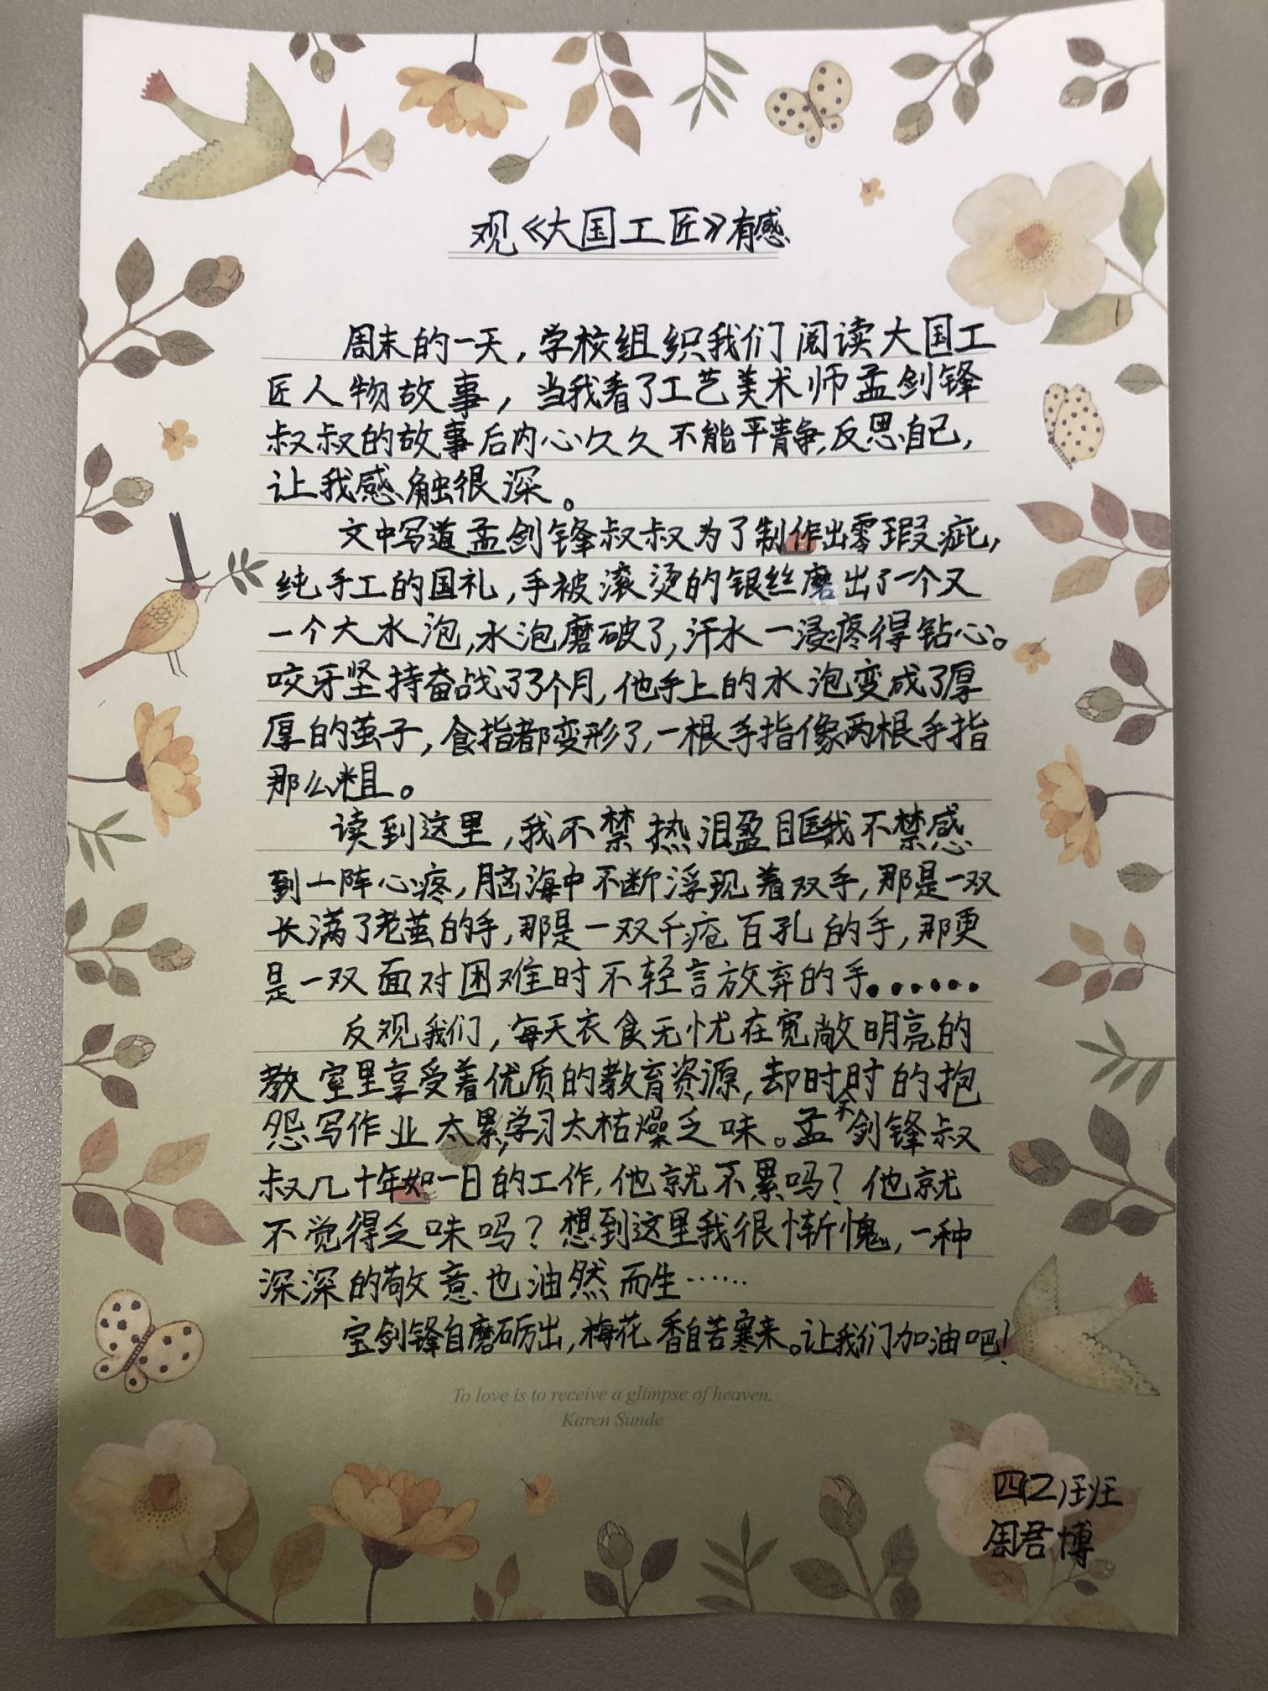 观《大国工匠》有感
周末的一天，学校组织我们阅读大国工
匠人物故事，当我看了工艺美术师孟剑锋
叔叔的故事后内心久久不能平静，反思自己，
让我感触很深。
文中写道孟剑锋叔叔为了制作出零瑕疵，
纯手工的国礼，手被滚烫的银丝磨出了一个又
一个大水泡，水泡磨破了，汗水一浸疼得钻心。
咬牙坚持奋战了3个月，他手上的水泡变成了厚
厚的茧子，食指都变形了，一根手指像两根手指
那么粗。
读到这里，我不禁热泪盈眶我不禁感
到一阵心疼，脑海中不断浮现着双手，那是一双
长满了老茧的手，那是一双千疮百孔的手，那更
是一双面对困难时不轻言放弃的手。……
反观我们，每天衣食无忧在宽敞明亮的
教室里享受着优质的教育资源，却时时的抱
怨写作业太累，学习太枯燥乏味。孟剑锋叔
叔几十年如一日的工作，他就不累吗？他就
不觉得乏味吗？想到这里我很惭愧，一种
深深的敬意也油然而生……
宝剑锋自磨砺出，梅花香自苦寒来。让我们加油吧！
To love is to receive a glimpse of heaven.
Karen Sunde
四(2)班
周君博